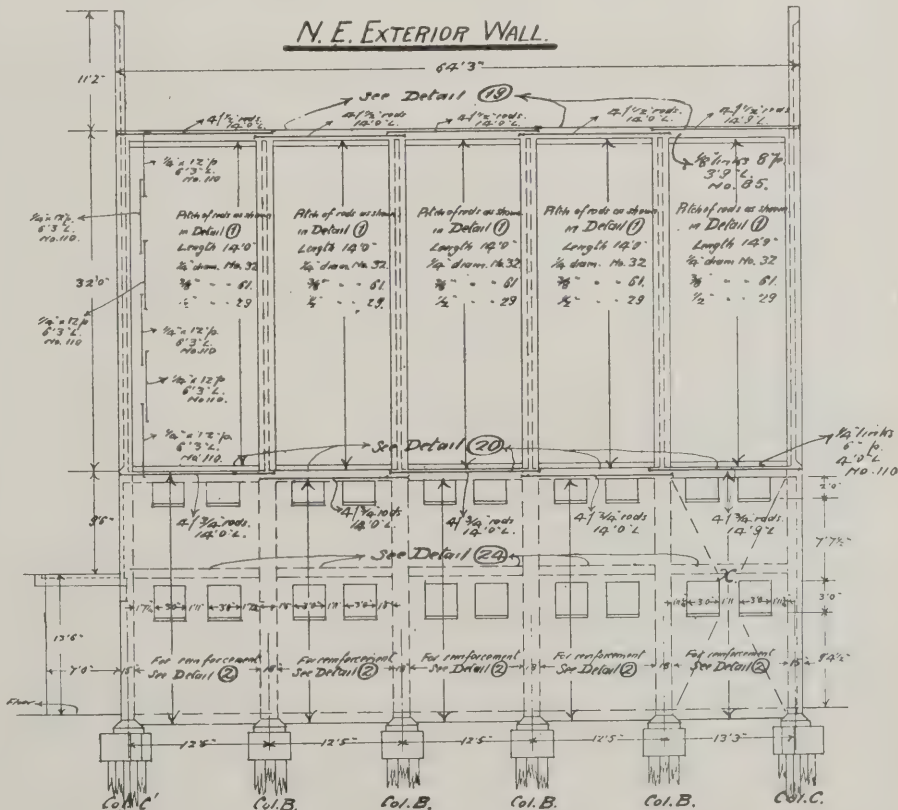 N. E. EXTERIOR WALL.
64'3"
11'2"
See Detail 19
4-1 1/2" rods
14'0" L.
4-1 1/2" rods
14'0" L.
4-1 1/2" rods
14'0" L.
4-1 1/2" rods
14'0" L.
4-1 1/2" rods
14'9" L.
links 8" p.
3'9" L.
No. 85.
1/4" x 12" p
6'3" L.
No. 110
1/4" x 12" p.
6'3" L.
No. 110.
32'0"
1/4" x 12" p
6'3" L.
No. 110
1/4" x 12" p
6'3" L.
No. 110
1/4" x 12" p
6'3" L.
No. 110.
1/4" x 12" p.
6'3" L.
No. 110.
Pitch of rods as shown
in Detail 1
Length 14'0"
1/4" diam. No. 32
3/8" " " 61.
1/2" " " 29
Pitch of rods as shown
in Detail 1
Length 14'0"
1/4" diam. No. 32
3/8" " " 61.
1/2" " " 29
Pitch of rods as shown
in Detail 1
Length 14'0"
1/4" diam. No. 32
3/8" " " 61
1/2" " " 29
Pitch of rods as shown
in Detail 1
Length 14'0"
1/4" diam. No. 32
3/8" " " 61.
1/2" " " 29.
Pitch of rods as shown
in Detail 1
Length 14'9"
1/4" diam. No. 32
3/8" " " 61
1/2" " " 29
See Detail 20
1/4" links
6" p.
4'0" L
No. 110
4-1 3/4" rods.
14'0" L.
4-1 3/4" rods
14'0" L.
4-1 3/4" rods
14'0" L.
4-1 3/4" rods
14'0" L
4-1 3/4" rods.
14'9" L
2'0"
9'6"
7'7 1/2"
See Detail 24
X
3'0" 1'11" 3'0"
3'0" 1'11" 3'0"
3'0" 1'11" 3'0"
3'0"
13'6"
7'0"
Floor
15"
For reinforcement
See Detail 2
18"
For reinforcement
See Detail 2
18"
For reinforcement
See Detail 2
18"
For reinforcement
See Detail 2
18"
For reinforcement
See Detail 2
15"
9'4 1/2"
12'5"
12'5"
12'5"
12'5"
13'3"
Col. C'
Col. B.
Col. B.
Col. B.
Col. B.
Col. C.